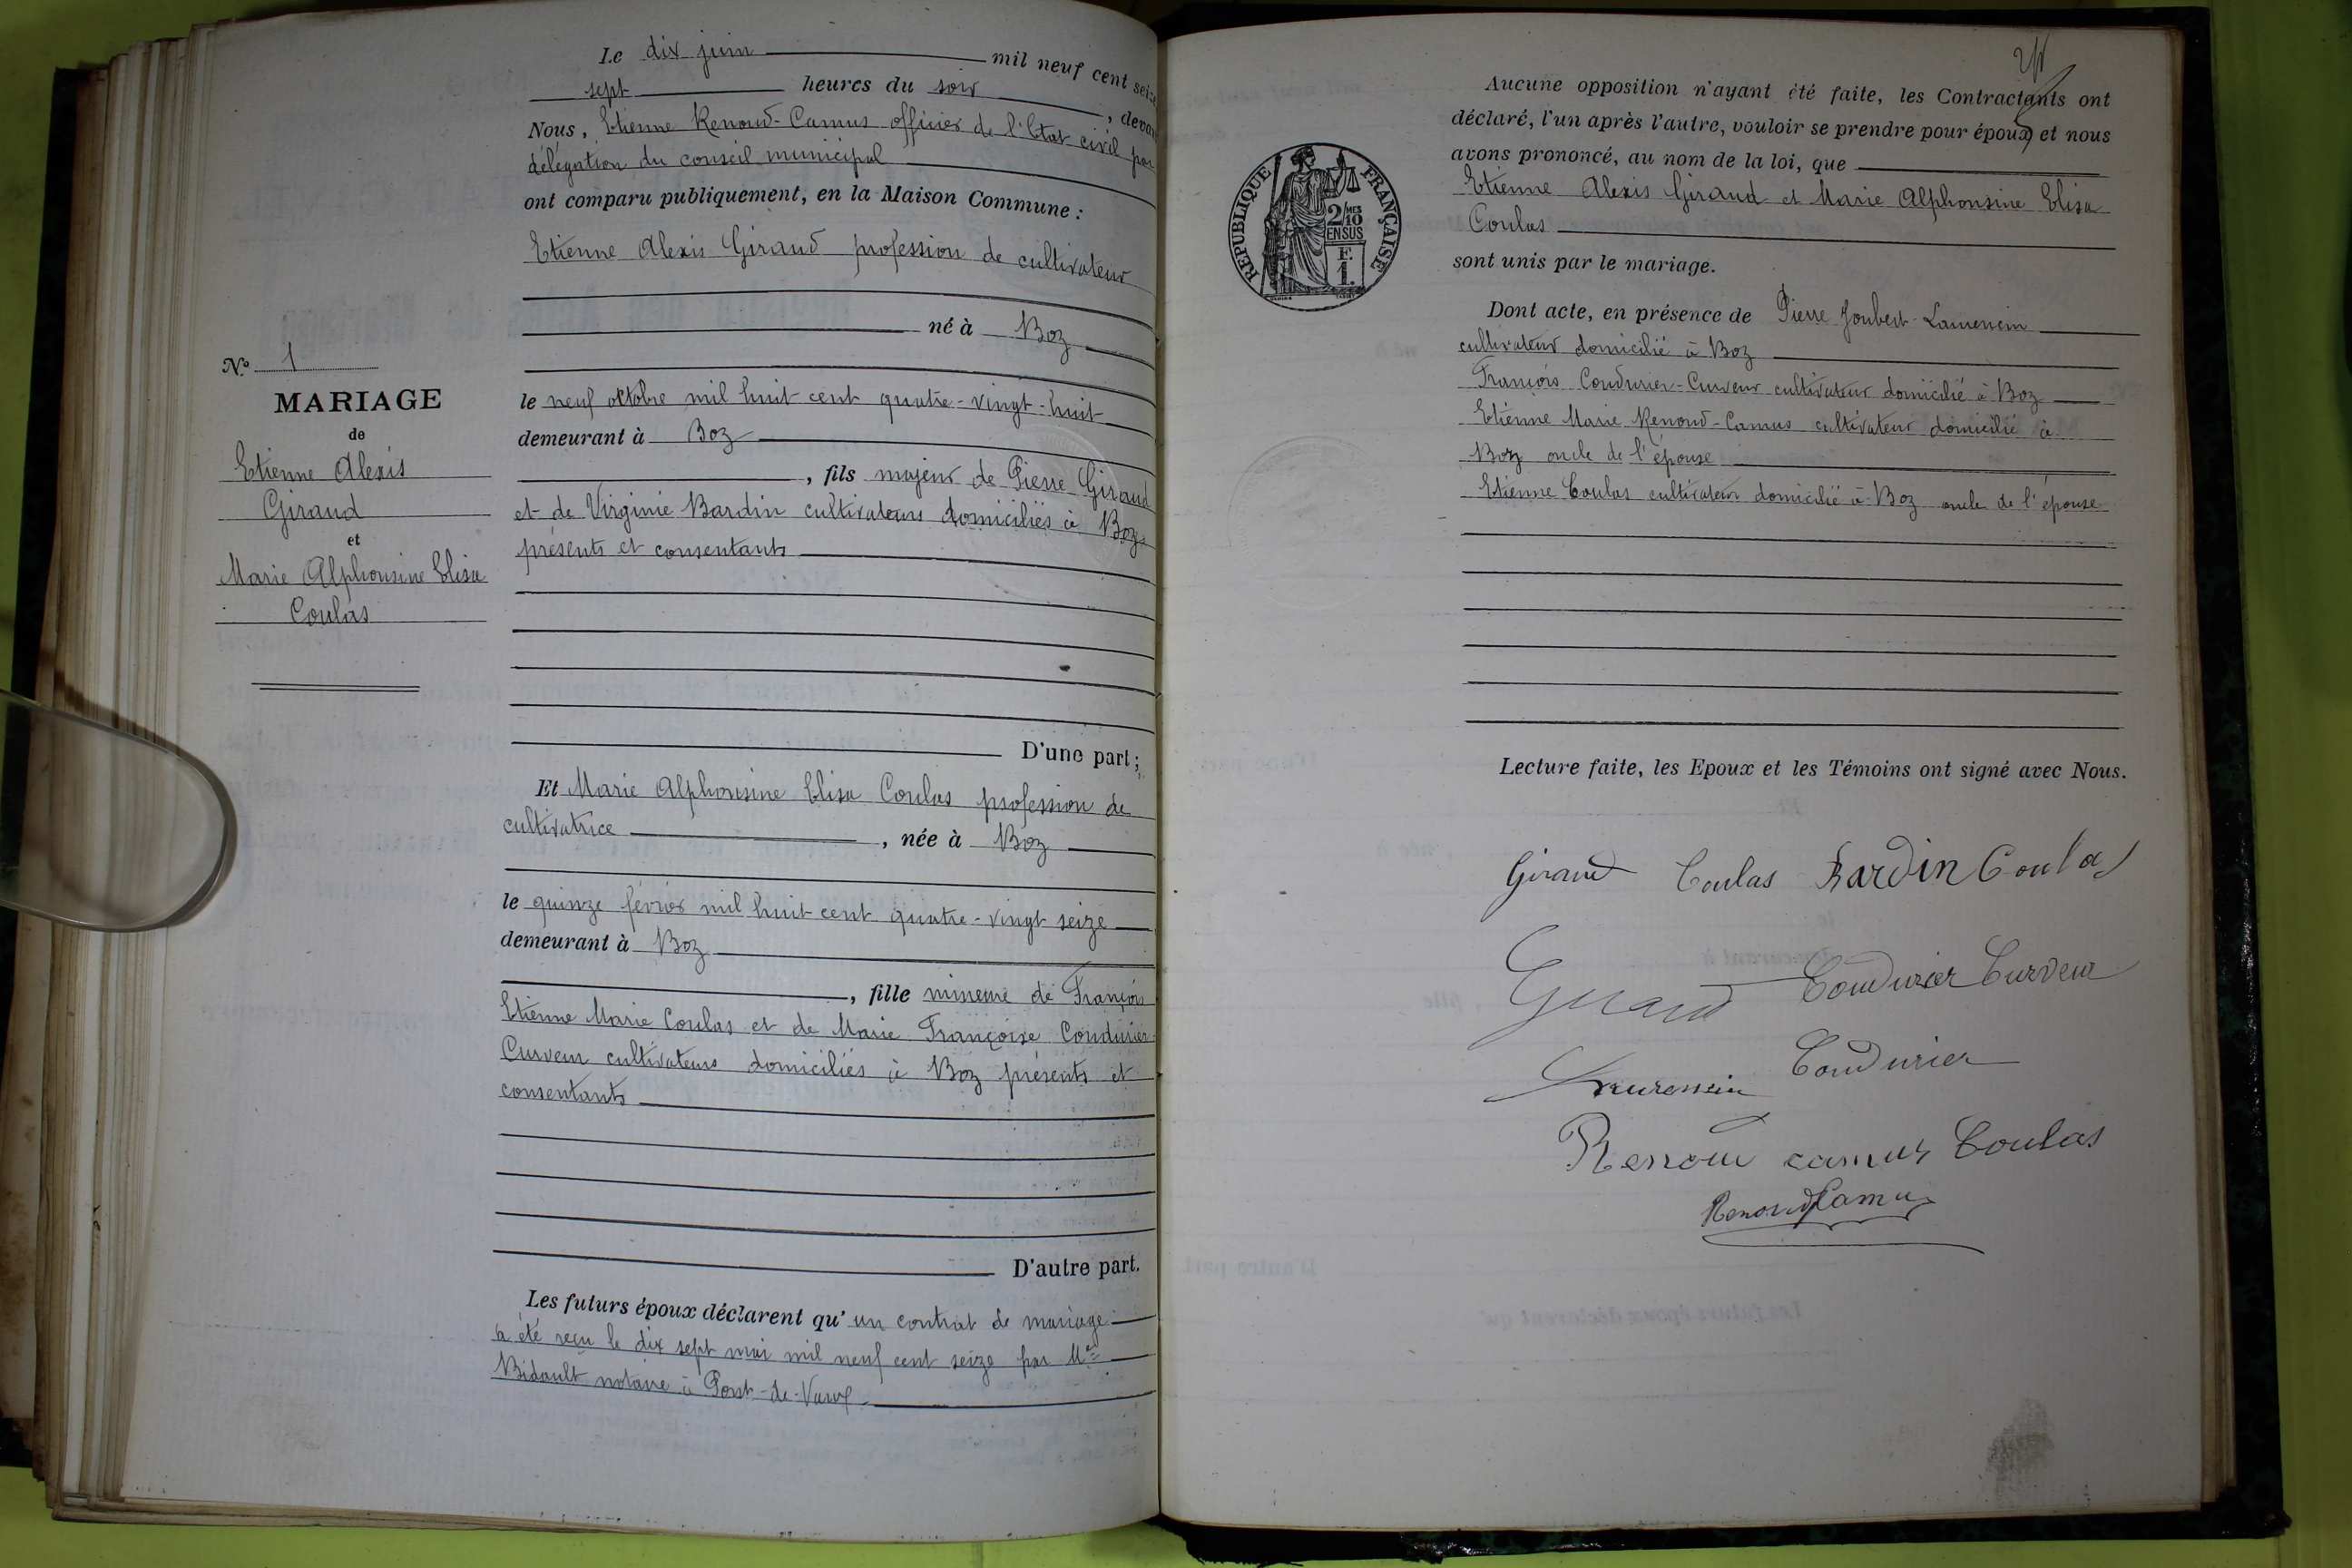 Le dix juin mil neuf cent seize
sept heures du soir, devant
Nous, Etienne Renoud-Camus officier de l'Etat civil par
délégation du conseil municipal
ont comparu publiquement, en la Maison Commune :
Etienne Alexis Giraud profession de cultivateur
né à Boz
le neuf octobre mil huit cent quatre-vingt-huit
demeurant à Boz
, fils majeur de Pierre Giraud
et de Virginie Bardin cultivateurs domiciliés à Boz
présents et consentants
D'une part ;
Nº 1
MARIAGE
de
Etienne Alexis
Giraud
et
Marie Alphonsine Elisa
Coulas
Et Marie Alphonsine Elisa Coulas profession de
cultivatrice, née à Boz
le quinze février mil huit cent quatre-vingt seize
demeurant à Boz
, fille mineure de François
Etienne Marie Coulas et de Marie Françoise Coudurier-
Curveur cultivateurs domiciliés à Boz présents et
consentants
D'autre part.
Les futurs époux déclarent qu'un contrat de mariage
a été reçu le dix sept mai mil neuf cent seize par Me
Bidault notaire à Pont-de-Vaux
RÉPUBLIQUE FRANÇAISE
2/10 MES
EN SUS
F.
1.
Aucune opposition n'ayant été faite, les Contractants ont
déclaré, l'un après l'autre, vouloir se prendre pour époux, et nous
avons prononcé, au nom de la loi, que
Etienne Alexis Giraud et Marie Alphonsine Elisa
Coulas
sont unis par le mariage.
Dont acte, en présence de Pierre Joubert-Laurencin
cultivateur domicilié à Boz
François Coudurier-Curveur cultivateur domicilié à Boz
Etienne Marie Renoud-Camus cultivateur domicilié à
Boz oncle de l'épouse
Etienne Coulas cultivateur domicilié à Boz oncle de l'épouse
Lecture faite, les Epoux et les Témoins ont signé avec Nous.
Giraud Coulas Bardin Coulas
Giraud Coudurier Curveur
Laurencin Coudurier
Renoud camus Coulas
Renoud Camus